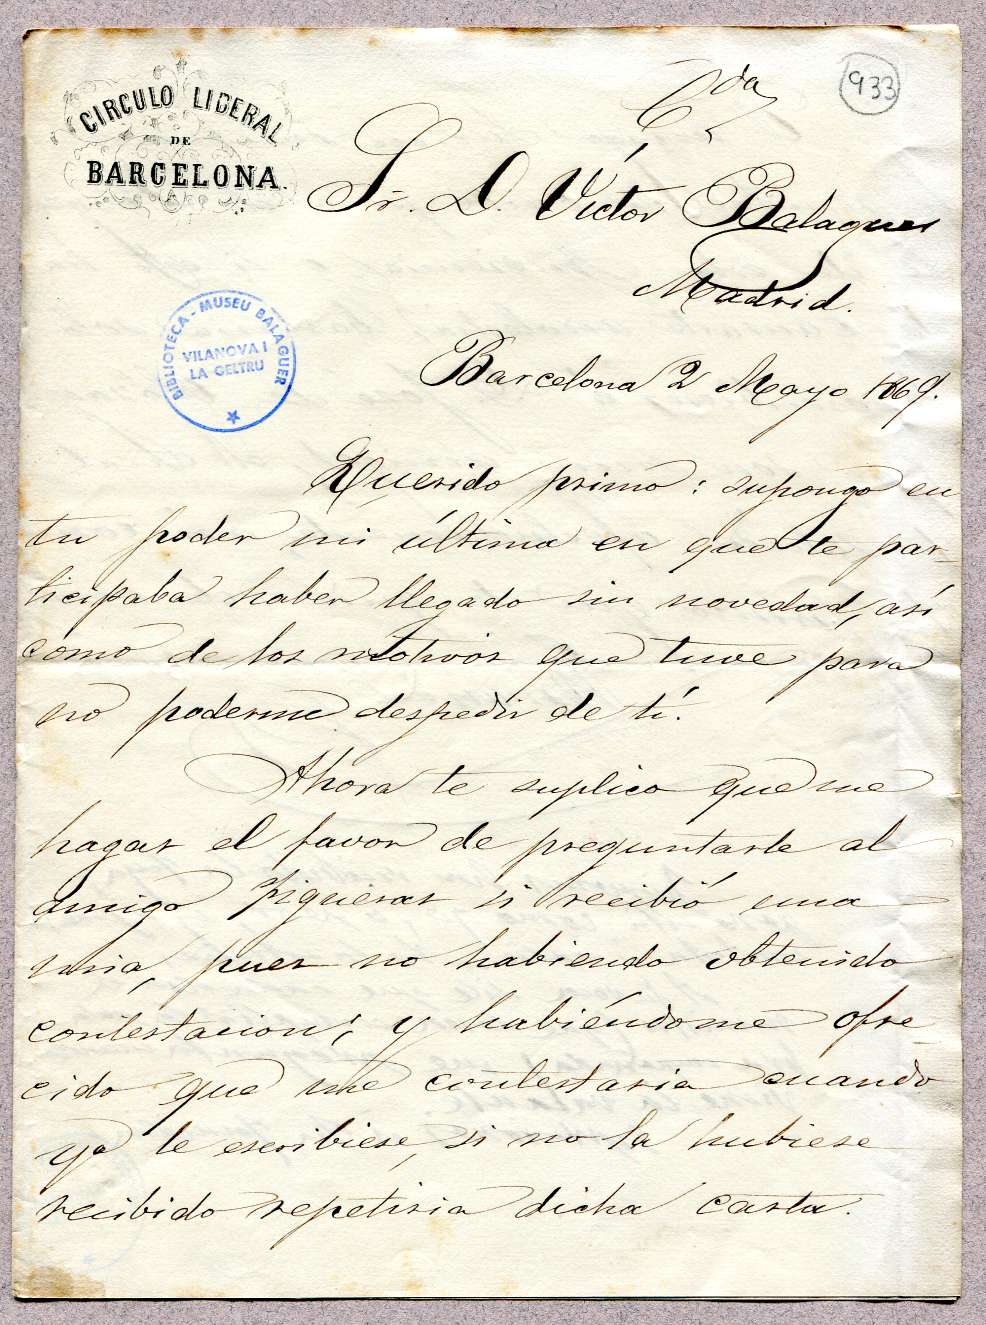 CIRCULO LIBERAL
DE
BARCELONA.
933
Cda
Sr. D. Víctor Balaguer
Madrid.
BIBLIOTECA - MUSEU BALAGUER
VILANOVA I
LA GELTRU
Barcelona 2 Mayo 1869.
Querido primo: supongo en
tu poder mi última en que te par-
ticipaba haber llegado sin novedad, así
como de los motivos que tuve para
no poderme despedir de tí.
Ahora te suplico que me
hagas el favor de preguntarle al
amigo Figueras si recibió una
mia, pues no habiendo obtenido
contestacion; y habiéndome ofre-
cido que me contestaria cuando
yo le escribiese, si no la hubiese
recibido repetiria dicha carta.